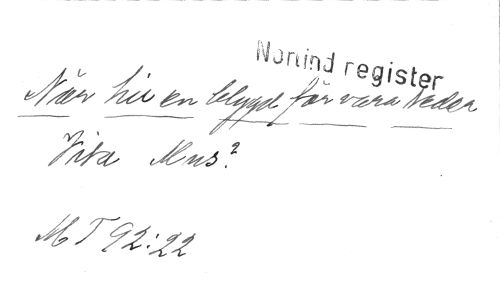 Nonind register
När hie en blygd för vara Neder
Vita Mus?
MT 92:22